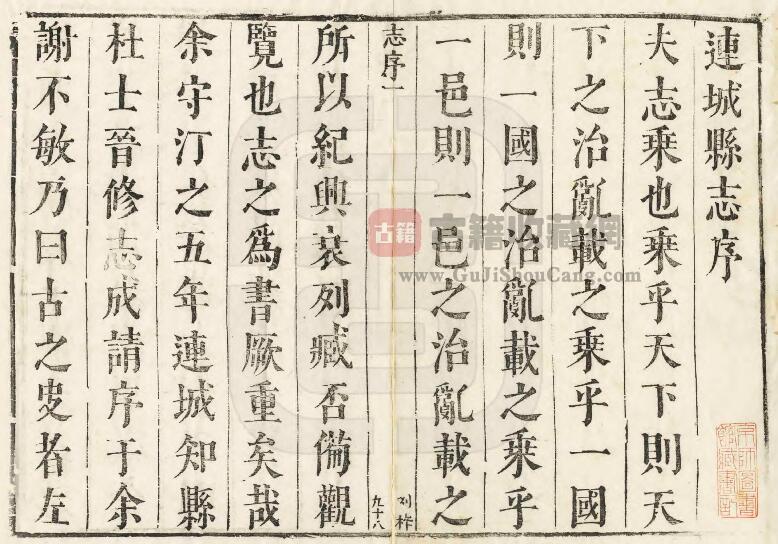 連城縣志序
夫志乘也乘乎天下則天
下之治亂載之乘乎一國
則一國之治亂載之乘乎
一邑則一邑之治亂載之
志序一
九十八
所以紀興衰列臧否偹觀
覽也志之爲書厥重矣哉
余守汀之五年連城知縣
杜士晉修志成請序于余
謝不敏乃曰古之史者左
古籍
古籍收藏網
www.GuJiShouCang.com